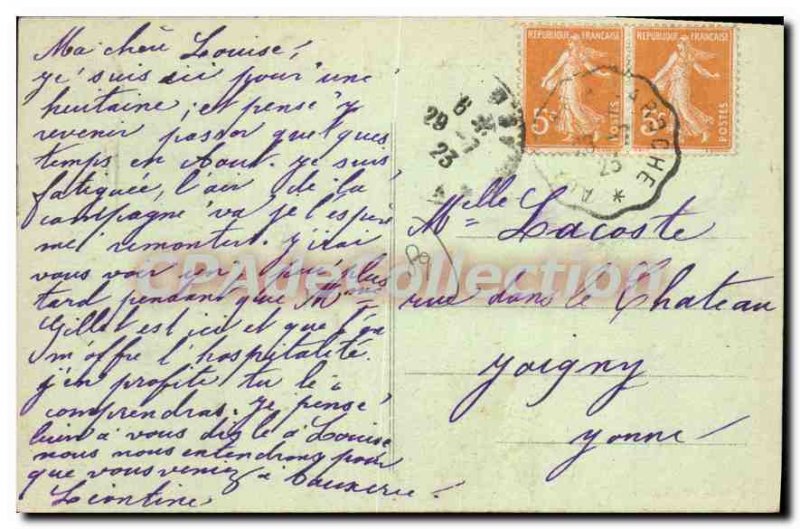 Ma chère Louise,
je suis ici pour une
huitaine, et pense y
revenir passer quelques
temps en Aout. je suis
fatiguée, l'air de la
campagne va je l'espère
me remonter. j'irai
vous voir un peu plus
tard pendant que Mme
Gillet est ici et que l'on
m'offre l'hospitalité
j'en profite tu le
comprendras. je pense
bien à vous dis le à Louise
nous nous entendrons pour
que vous veniez à Auxerre
Léontine
REPUBLIQUE FRANÇAISE
REPUBLIQUE FRANÇAISE
5c
5c
POSTES
POSTES
6
29 -7
23
LAROCHE
Melle Lacoste
rue dans le Chateau
Joigny
Yonne
CPADeCollection